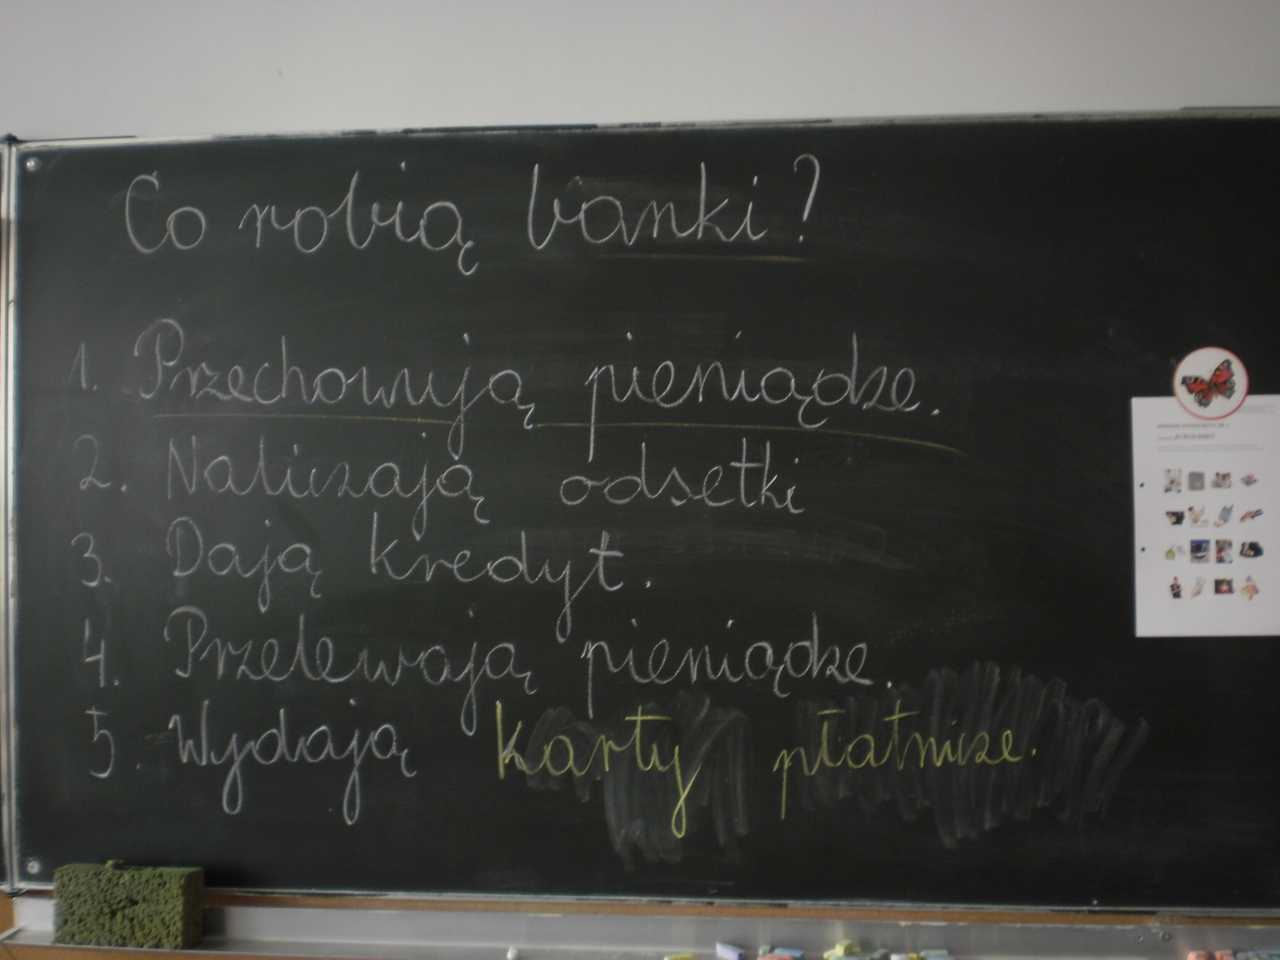 Co robią banki?
1. Przechowują pieniądze.
2. Naliczają odsetki
3. Dają kredyt.
4. Przelewają pieniądze.
5. Wydają karty płatnicze.